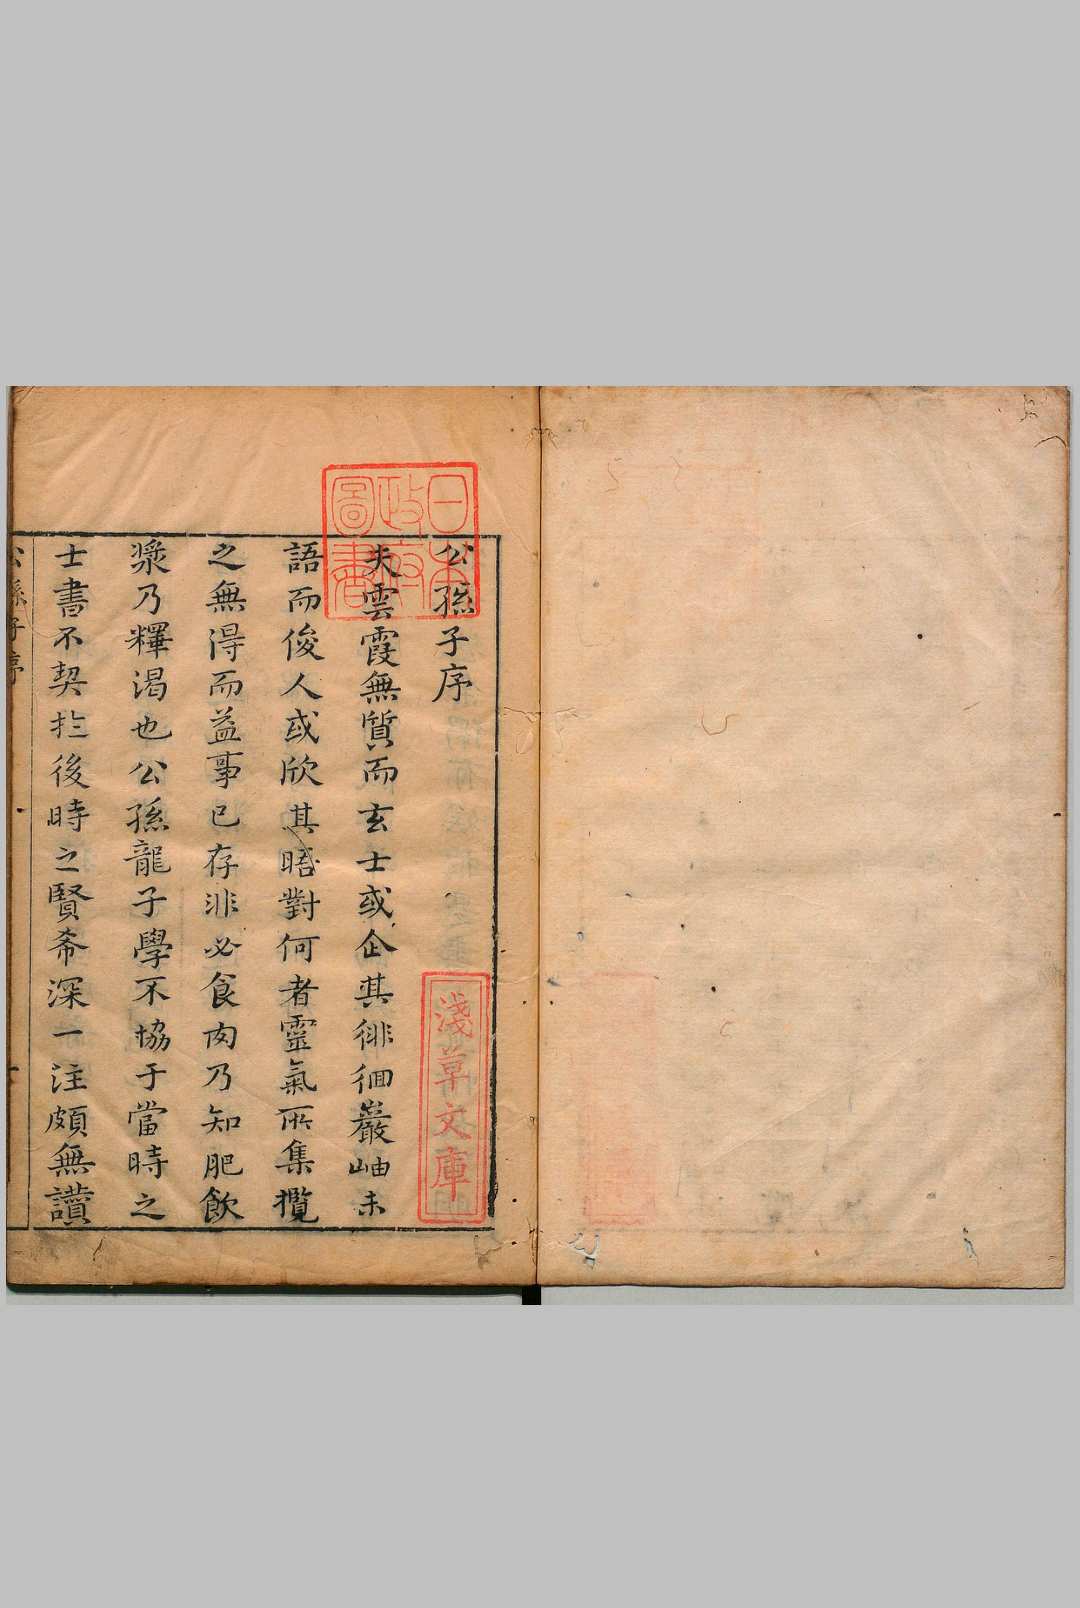 公孫子序
夫雲霞無質而玄士或企其徘徊巖岫未
語而俊人或欣其晤對何者靈氣所集攬
之無得而益事已存非必食肉乃知肥飲
漿乃釋渴也公孫龍子學不協于當時之
士書不契扵後時之賢希深一注頗無讚
公孫子序
日本政府圖書
淺草文庫